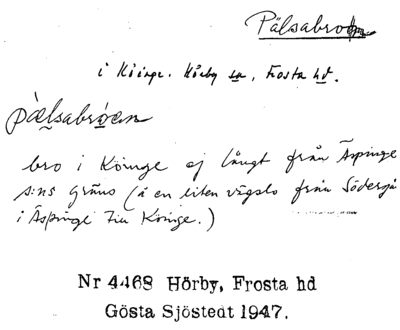 Pälsabro
i Köinge. Hörby sn, Frosta hd.
pälsabróen
bro i Köinge ej långt från Äspinge
s:ns gräns (å en liten vägslo från Södersjö
i Äspinge till Köinge.)
Nr 4468 Hörby, Frosta hd
Gösta Sjöstedt 1947.